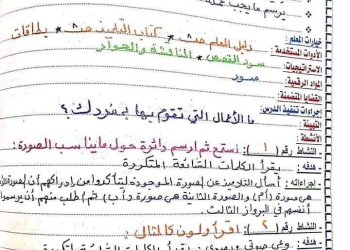 يرسم ما يجب عمله
خيارات المعلم : دليل المعلم ص٨ * كتاب التلميذ ص٨ * بطاقات
الأدوات المستخدمة :
الاستراتيجيات : سرد القصص * المناقشة والحوار
المواد الرقمية : صور
القضايا المتضمنة :
إجراءات تنفيذ الدرس:
التهيئة : ما الأعمال التي تقوم بها بمفردك ؟
الأنشطة :
- النشاط رقم ( 1 ): استمع ثم ارسم دائرة حول ما يناسب الصورة :
- هدفه : يقرأ الكلمات الشائعة المتكررة
- إجراءاته : أسأل التلاميذ عن الصورة الموجودة ليتأكدوا من إدراكهم أن الصورة
هي صورة (أم) والصورة الثانية هي صورة (أب) ثم اطلب منهم أن يرسموا
أنفسهم في البرواز الثالث.
- النشاط رقم ( 2 ): اقرأ ولون كالمثال
- هدفه :